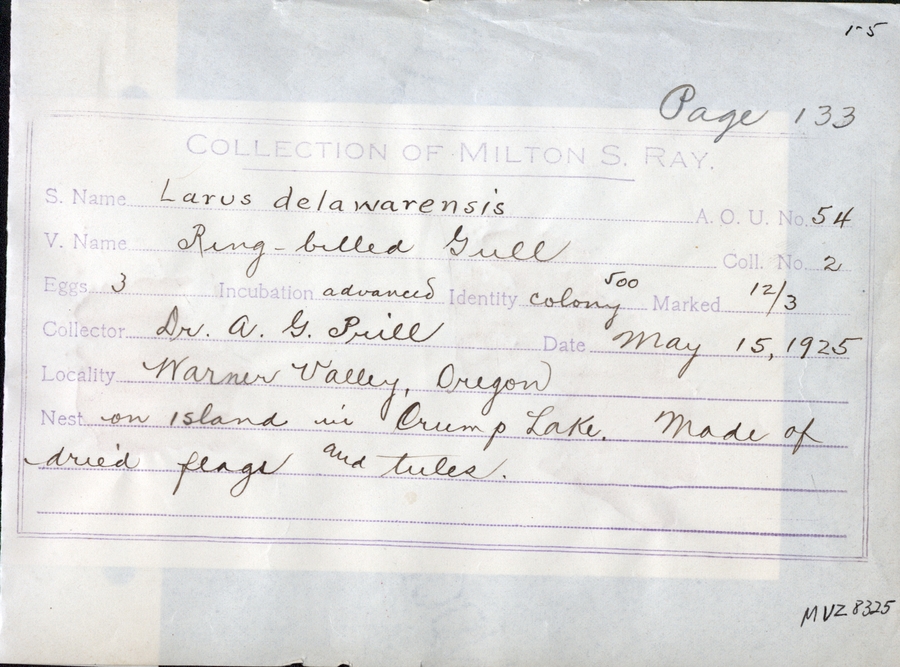 1-5
Page 133
COLLECTION OF MILTON S. RAY.
S. Name Larus delawarensis A. O. U. No. 54
V. Name Ring-billed Gull Coll. No. 2
Eggs 3 Incubation advanced Identity colony 500 Marked 12/3
Collector Dr. A. G. Prill Date May 15, 1925
Locality Warner Valley, Oregon
Nest on island in Crump Lake. Made of
dried flags and tules.
MVZ 8325